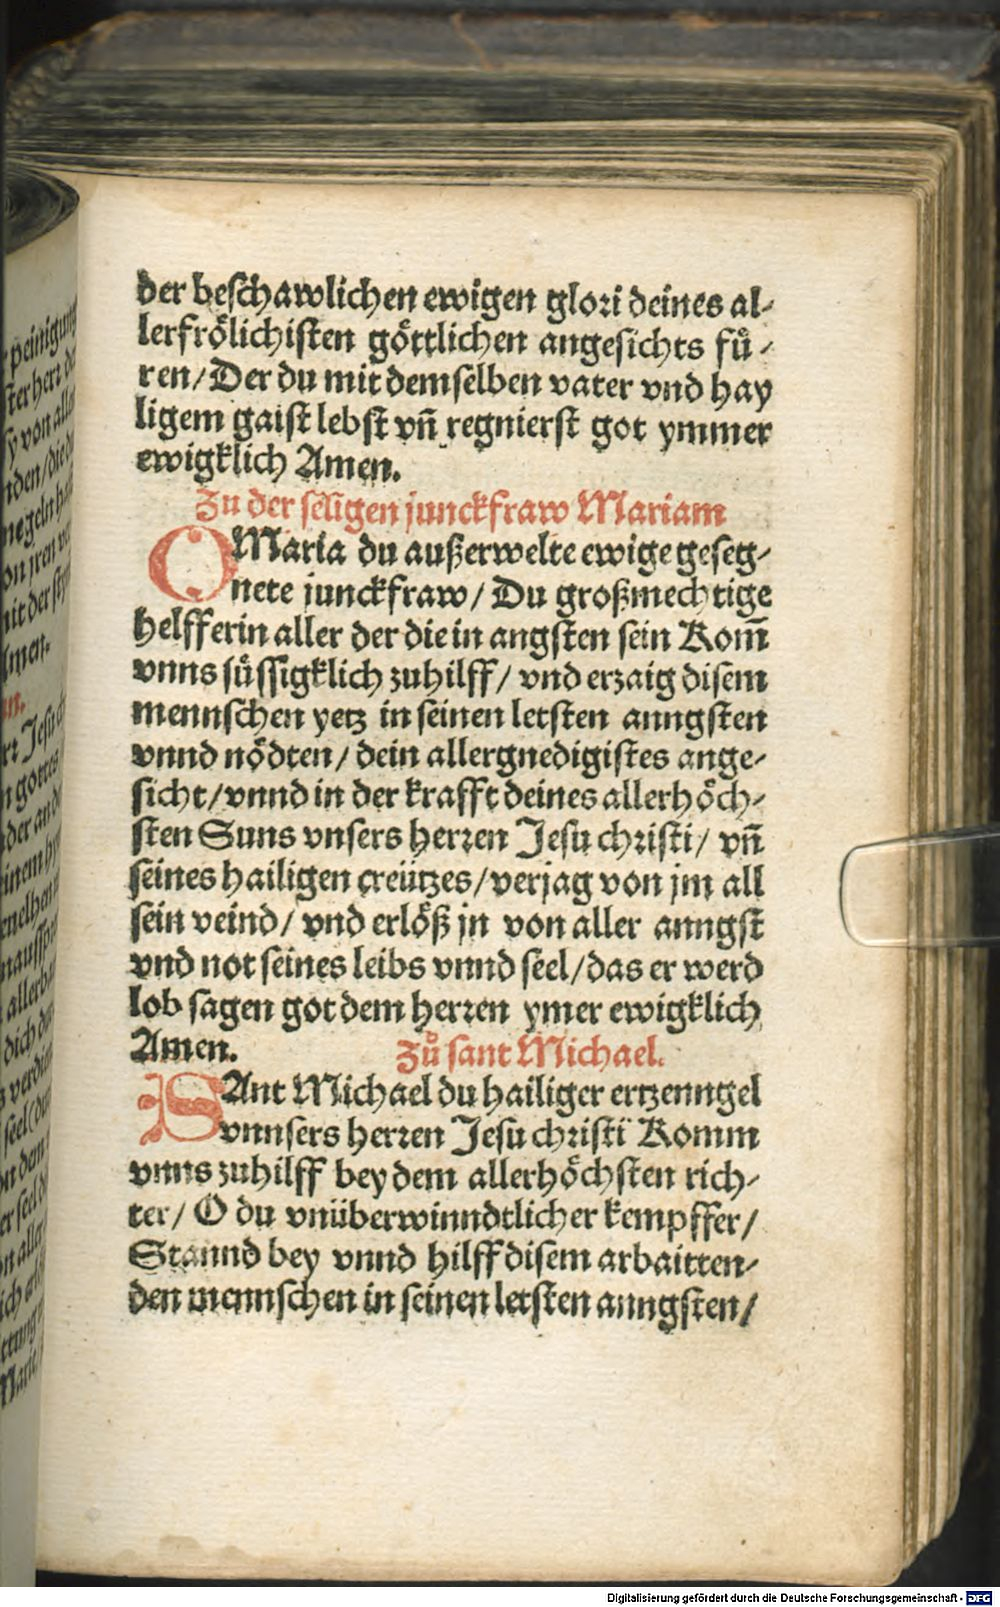 der beschawlichen ewigen glori deines al-
lerfrölichisten göttlichen angesichts fuͤ-
ren/Der du mit demselben vater vnd hay
ligem gaist lebst vñ regnierst got ymmer
ewigklich Amen.
Zu der seligen junckfraw Mariam
O Maria du außerwelte ewige geseg-
nete junckfraw/ Du großmechtige
helfferin aller der die in angsten sein Kom̄
vnns suͤssigklich zuhilff/ vnd erzaig disem
mennschen yetz in seinen letsten anngsten
vnnd nödten/ dein allergnedigistes ange-
sicht/vnnd in der krafft deines allerhöch-
sten Suns vnsers herren Jesu christi/ vñ
seines hailigen creützes/verjag von jm all
sein veind/ vnd erlöß jn von aller anngst
vnd not seines leibs vnnd seel/das er werd
lob sagen got dem herren ymer ewigklich
Amen. Zuͦ sant Michael.
SAnt Michael du hailiger ertzenngel
vnnsers herren Jesu christi Komm
vnns zuhilff bey dem allerhöchsten rich-
ter/ O du vnüberwinndtlicher kempffer/
Stannd bey vnnd hilff disem arbaitten-
den mennschen in seinen letsten anngsten/
Digitalisierung gefördert durch die Deutsche Forschungsgemeinschaft - DFG